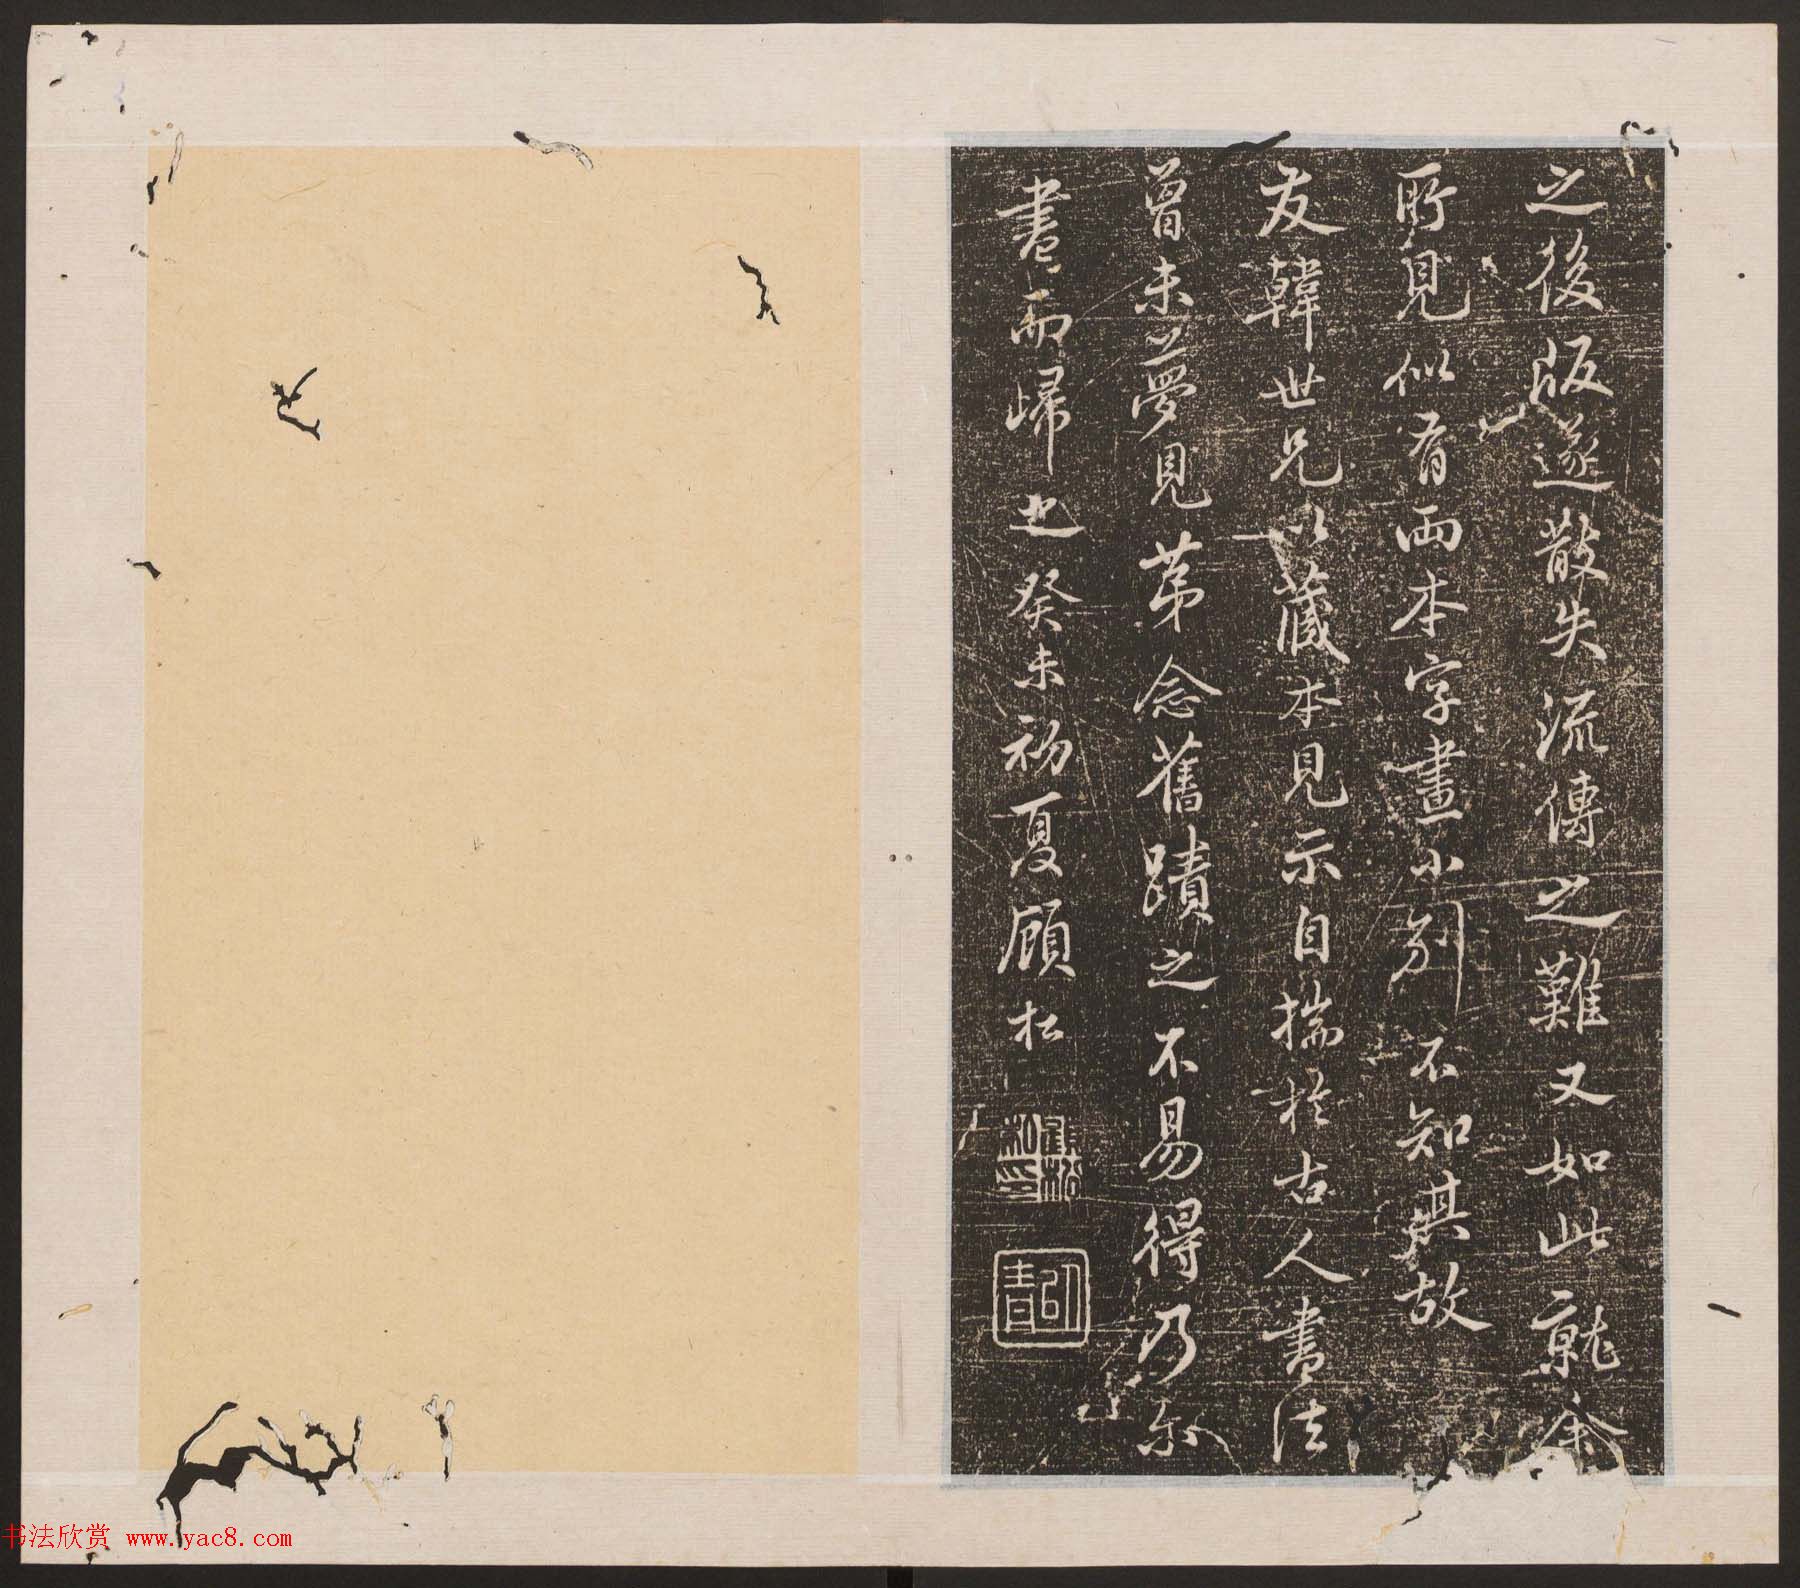 之後版遂散失流傳之難又如此就余
所見似有兩本字畫小別不知其故
友韓世兄以藏本見示自揣於古人書法
曾未夢見第念舊蹟之不易得乃亦
書而歸之癸未初夏顧松
书法欣赏 www.yac8.com